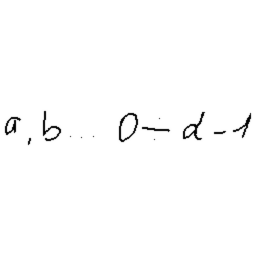 a, b ... 0 — d - 1